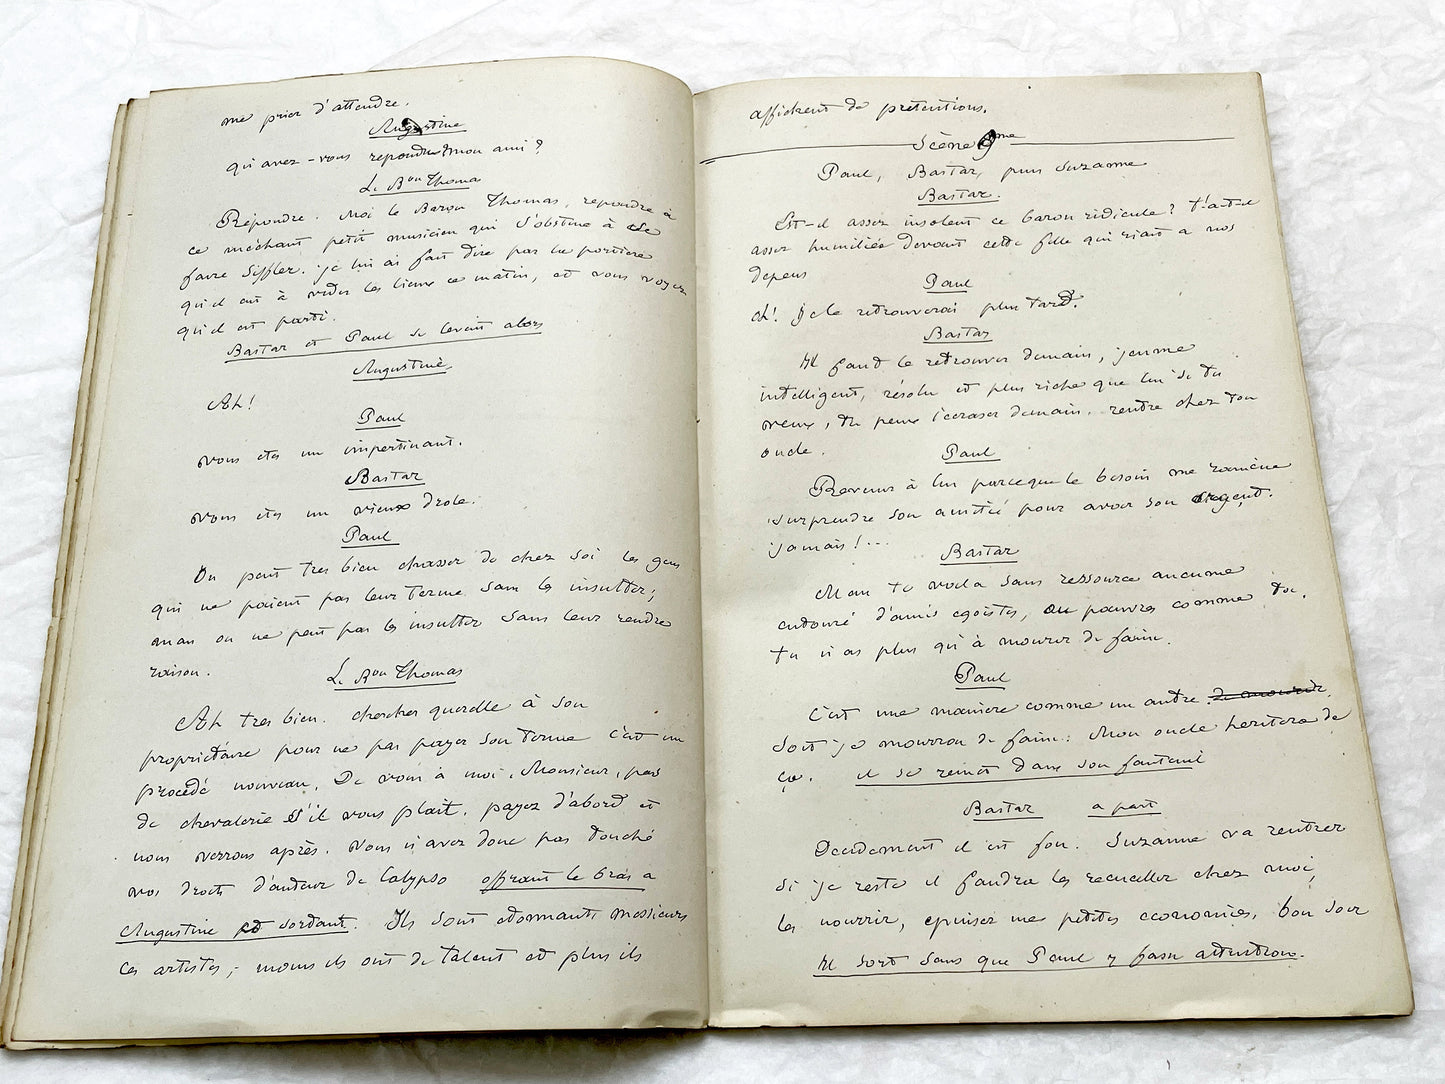 me prier d'attendre.
Augustine
qu'avez-vous répondu mon ami?
Le Bon Thomas
Répondre. Moi le Baron Thomas, répondre à
ce méchant petit musicien qui s'obstine à se
faire siffler. je lui ai fait dire par la portière
qu'il eut à vider les lieux ce matin, et vous voyez
qu'il est parti.
Bastar et Paul se levant alors
Augustine
Ah!
Paul
vous etes un impertinant.
Bastar
vous etes un vieux drole.
Paul
On peut tres bien chasser de chez soi les gens
qui ne paient pas leur terme sans les insulter;
mais on ne peut pas les insulter sans leur rendre
raison.
Le Bon Thomas
Ah tres bien. chercher querelle à son
propriétaire pour ne pas payer son terme c'est un
procédé nouveau. De vous à moi, Monsieur, pas
de chevalerie s'il vous plait. payez d'abord et
nous verrons après. Vous n'avez donc pas touché
vos droits d'auteur de Calypso offrant le bras a
Augustine et sortant. Ils sont étonnants messieurs
les artistes, moins ils ont de talent et plus ils
affichent de prétentions.
Scène 9me
Paul, Bastar, puis Suzanne
Bastar.
Est-il assez insolent ce baron ridicule? t'a-t-il
assez humiliée devant cette fille qui riait a nos
depens
Paul
oh! je le retrouverai plus tard.
Bastar
Il faut le retrouver demain, jeune
intelligent, résolu et plus riche que lui si tu
veux, tu peux l'ecraser demain. rentre chez ton
oncle.
Paul
Revenir à lui parceque le besoin me ramène
surprendre son amitié pour avoir son argent.
jamais!...
Bastar
Mais te voila sans ressource aucune
entouré d'amis egoïstes, ou pauvres comme toi.
tu n'as plus qu'à mourir de faim.
Paul
C'est une manière comme un autre de mourir.
Soit je mourrai de faim: Mon oncle heritera de
ça. il se remet dans son fauteuil
Bastar a part
Decidement il est fou. Suzanne va rentrer
si je reste il faudra les recueillir chez moi,
les nourrir, epuiser mes petites economies, bon soir
Il sort sans que Paul y fasse attention.